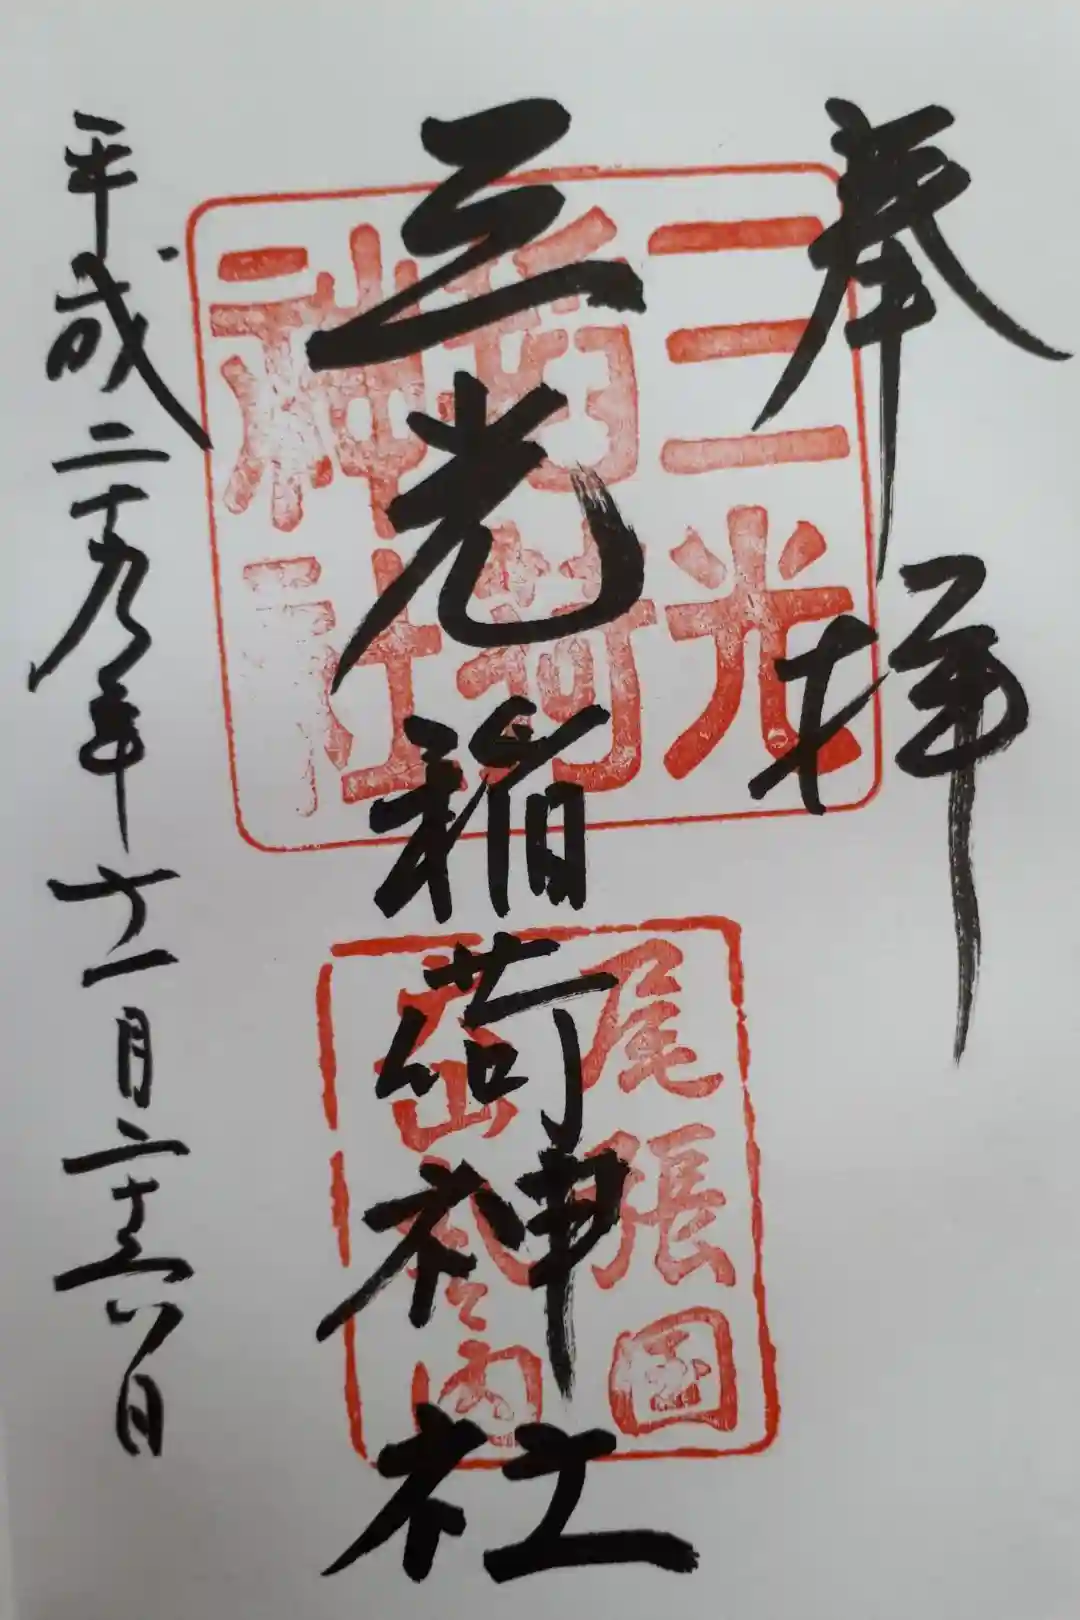 奉拝
三光稲荷神社
平成二十九年十一月二十六日
三光
稲荷
神社
尾張国
犬山
内